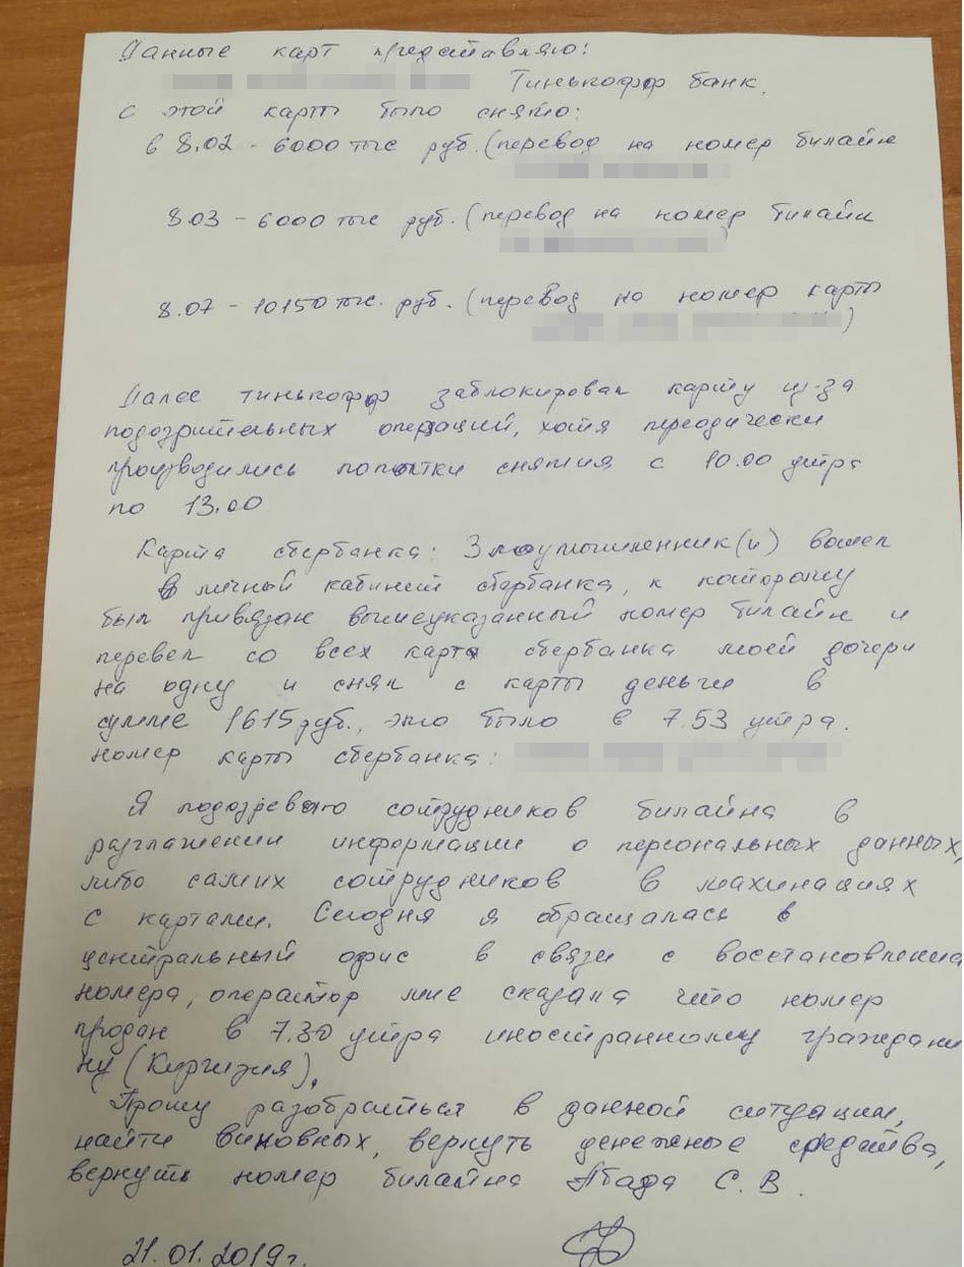 Данные карт представляю:
Тинькофф банк.
с этой карты было снято:
в 8.02 - 6000 тыс руб. (перевод на номер билайн
8.03 - 6000 тыс руб. (перевод на номер билайн
)
8.07 - 10150 тыс. руб. (перевод на номер карты
)
Далее тинькофф заблокировал карту из-за
подозрительных операций, хотя переодически
производились попытки снятия с 10.00 утра
по 13.00
Карта сбербанка: Злоумышленник(и) вошел
в личной кабинет сбербанка, к которому
был привязан вышеуказанный номер билайн и
перевел со всех карт сбербанка моей дочери
на одну и снял с карты деньги в
сумме 1615 руб., это было в 7.53 утра.
номер карты сбербанка:
Я подозреваю сотрудников билайна в
разглашении информации о персональных данных,
либо самих сотрудников в махинациях
с картами. Сегодня я обращалась в
центральный офис в связи с восстановления
номера, оператор мне сказала что номер
продан в 7.30 утра иностранному граждани
ну (Киргизия).
Прошу разобраться в данной ситуации,
найти виновных, вернуть денежные средства,
вернуть номер билайна С. В.
21.01.2019г.